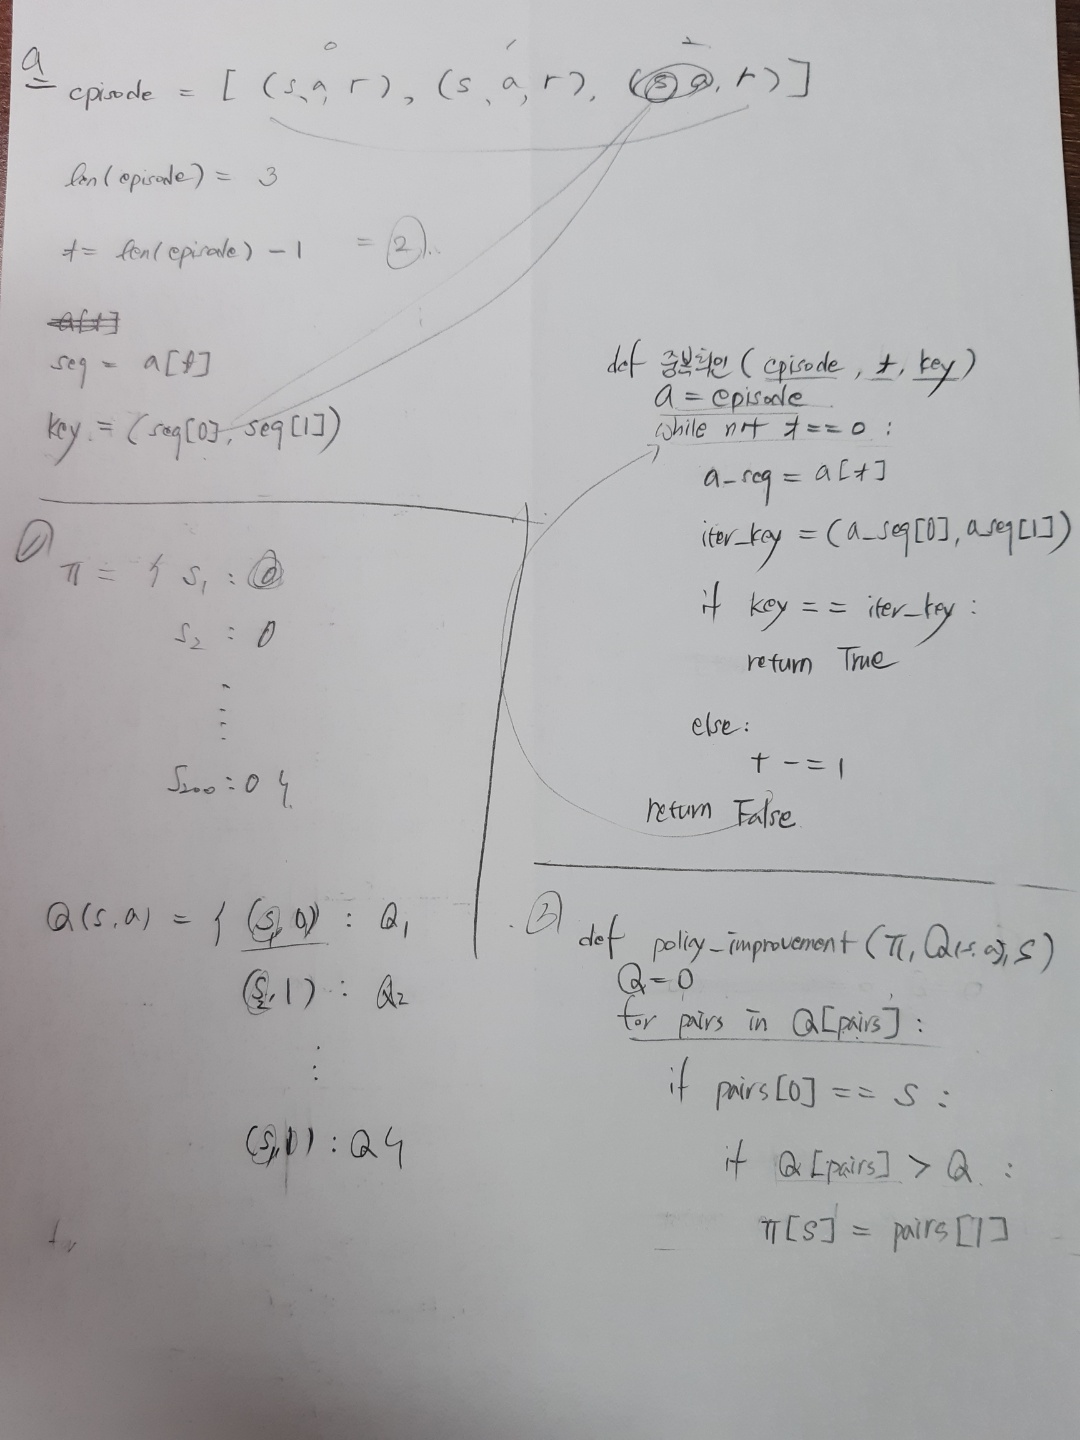 a
0 1 2
episode = [ (s, a, r), (s, a, r), (s, a, r) ]
len(episode) = 3
t = len(episode) - 1 = 2
a[t]
seq = a[t]
key = (seq[0], seq[1])
def 중복확인 (episode, t, key)
a = episode
while not t == 0 :
a_seq = a[t]
iter_key = (a_seq[0], a_seq[1])
if key == iter_key :
return True
else :
t -= 1
return False
π = { s₁ : 0
s₂ : 0
⋮
s₂₀₀ : 0 }
Q(s, a) = { (s₁, 0) : Q₁
(s₂, 1) : Q₂
⋮
: Q }
3
def policy_improvement (π, Q(s, a), s)
Q = 0
for pairs in Q[pairs] :
if pairs[0] == s :
if Q[pairs] > Q :
π[s] = pairs[1]